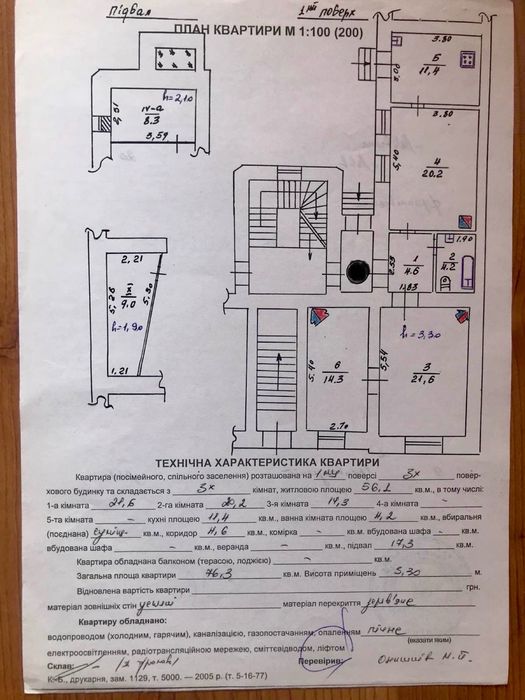 Підвал
1ий поверх
ПЛАН КВАРТИРИ М 1:100 (200)
h=2,10
IV-а
8.3
3,59
2,21
X
9,0
h=1,90
5,26
5,30
1,21
3.80
5
11,4
3,00
3.80
4
20.2
5,40
1,90
1
4.6
2
4.2
2,53
1,83
h=3,30
3
21,6
5,54
6
14.3
5.40
2.70
ТЕХНІЧНА ХАРАКТЕРИСТИКА КВАРТИРИ
Квартира (посімейного, спільного заселення) розташована на 1му поверсі 3х повер-
хового будинку та складається з 3х кімнат, житловою площею 56,1 кв.м., в тому числі:
1-а кімната 21,6 2-га кімната 20,2 3-я кімната 14,3 4-а кімната -
5-та кімната - кухні площею 11,4 кв.м., ванна кімната площею 4,2 кв.м., вбиральня
(поєднана) суміщ кв.м., коридор 4,6 кв.м., комірка - кв.м., вбудована шафа - кв.м.,
вбудована шафа - кв.м., веранда - кв.м., підвал 17,3 кв.м.
Квартира обладнана балконом (терасою, лоджією) - кв.м.
Загальна площа квартири 76,3 кв.м. Висота приміщень 3,30 м.
Відновлена вартість квартири грн.
матеріал зовнішніх стін цегла матеріал перекриття дерев'яне
Квартиру обладнано:
водопроводом (холодним, гарячим), каналізацією, газопостачанням, опаленням пічне
(вказати яким)
електроосвітленням, радіотрансляційною мережею, сміттєвідводом, ліфтом
Склав: Перевірив:
К.-Б., друкарня, зам. 1129, т. 5000. — 2005 р. (т. 5-16-77)